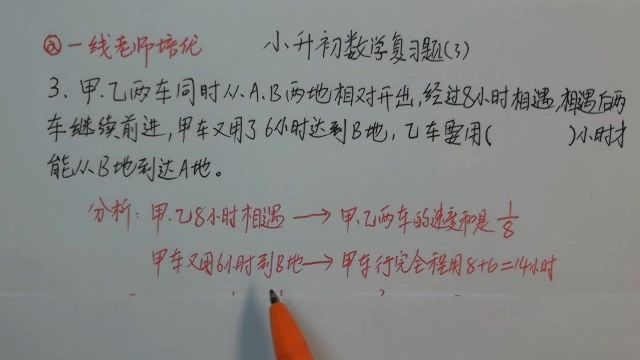 @一线老师培优 小升初数学复习题(3)
3. 甲、乙两车同时从A、B两地相对开出,经过8小时相遇,相遇后两
车继续前进,甲车又用了6小时达到B地,乙车要用( )小时才
能从B地到达A地。
分析: 甲、乙8小时相遇 → 甲、乙两车的速度和是 1/8
甲车又用6小时到B地 → 甲车行完全程用8+6=14小时